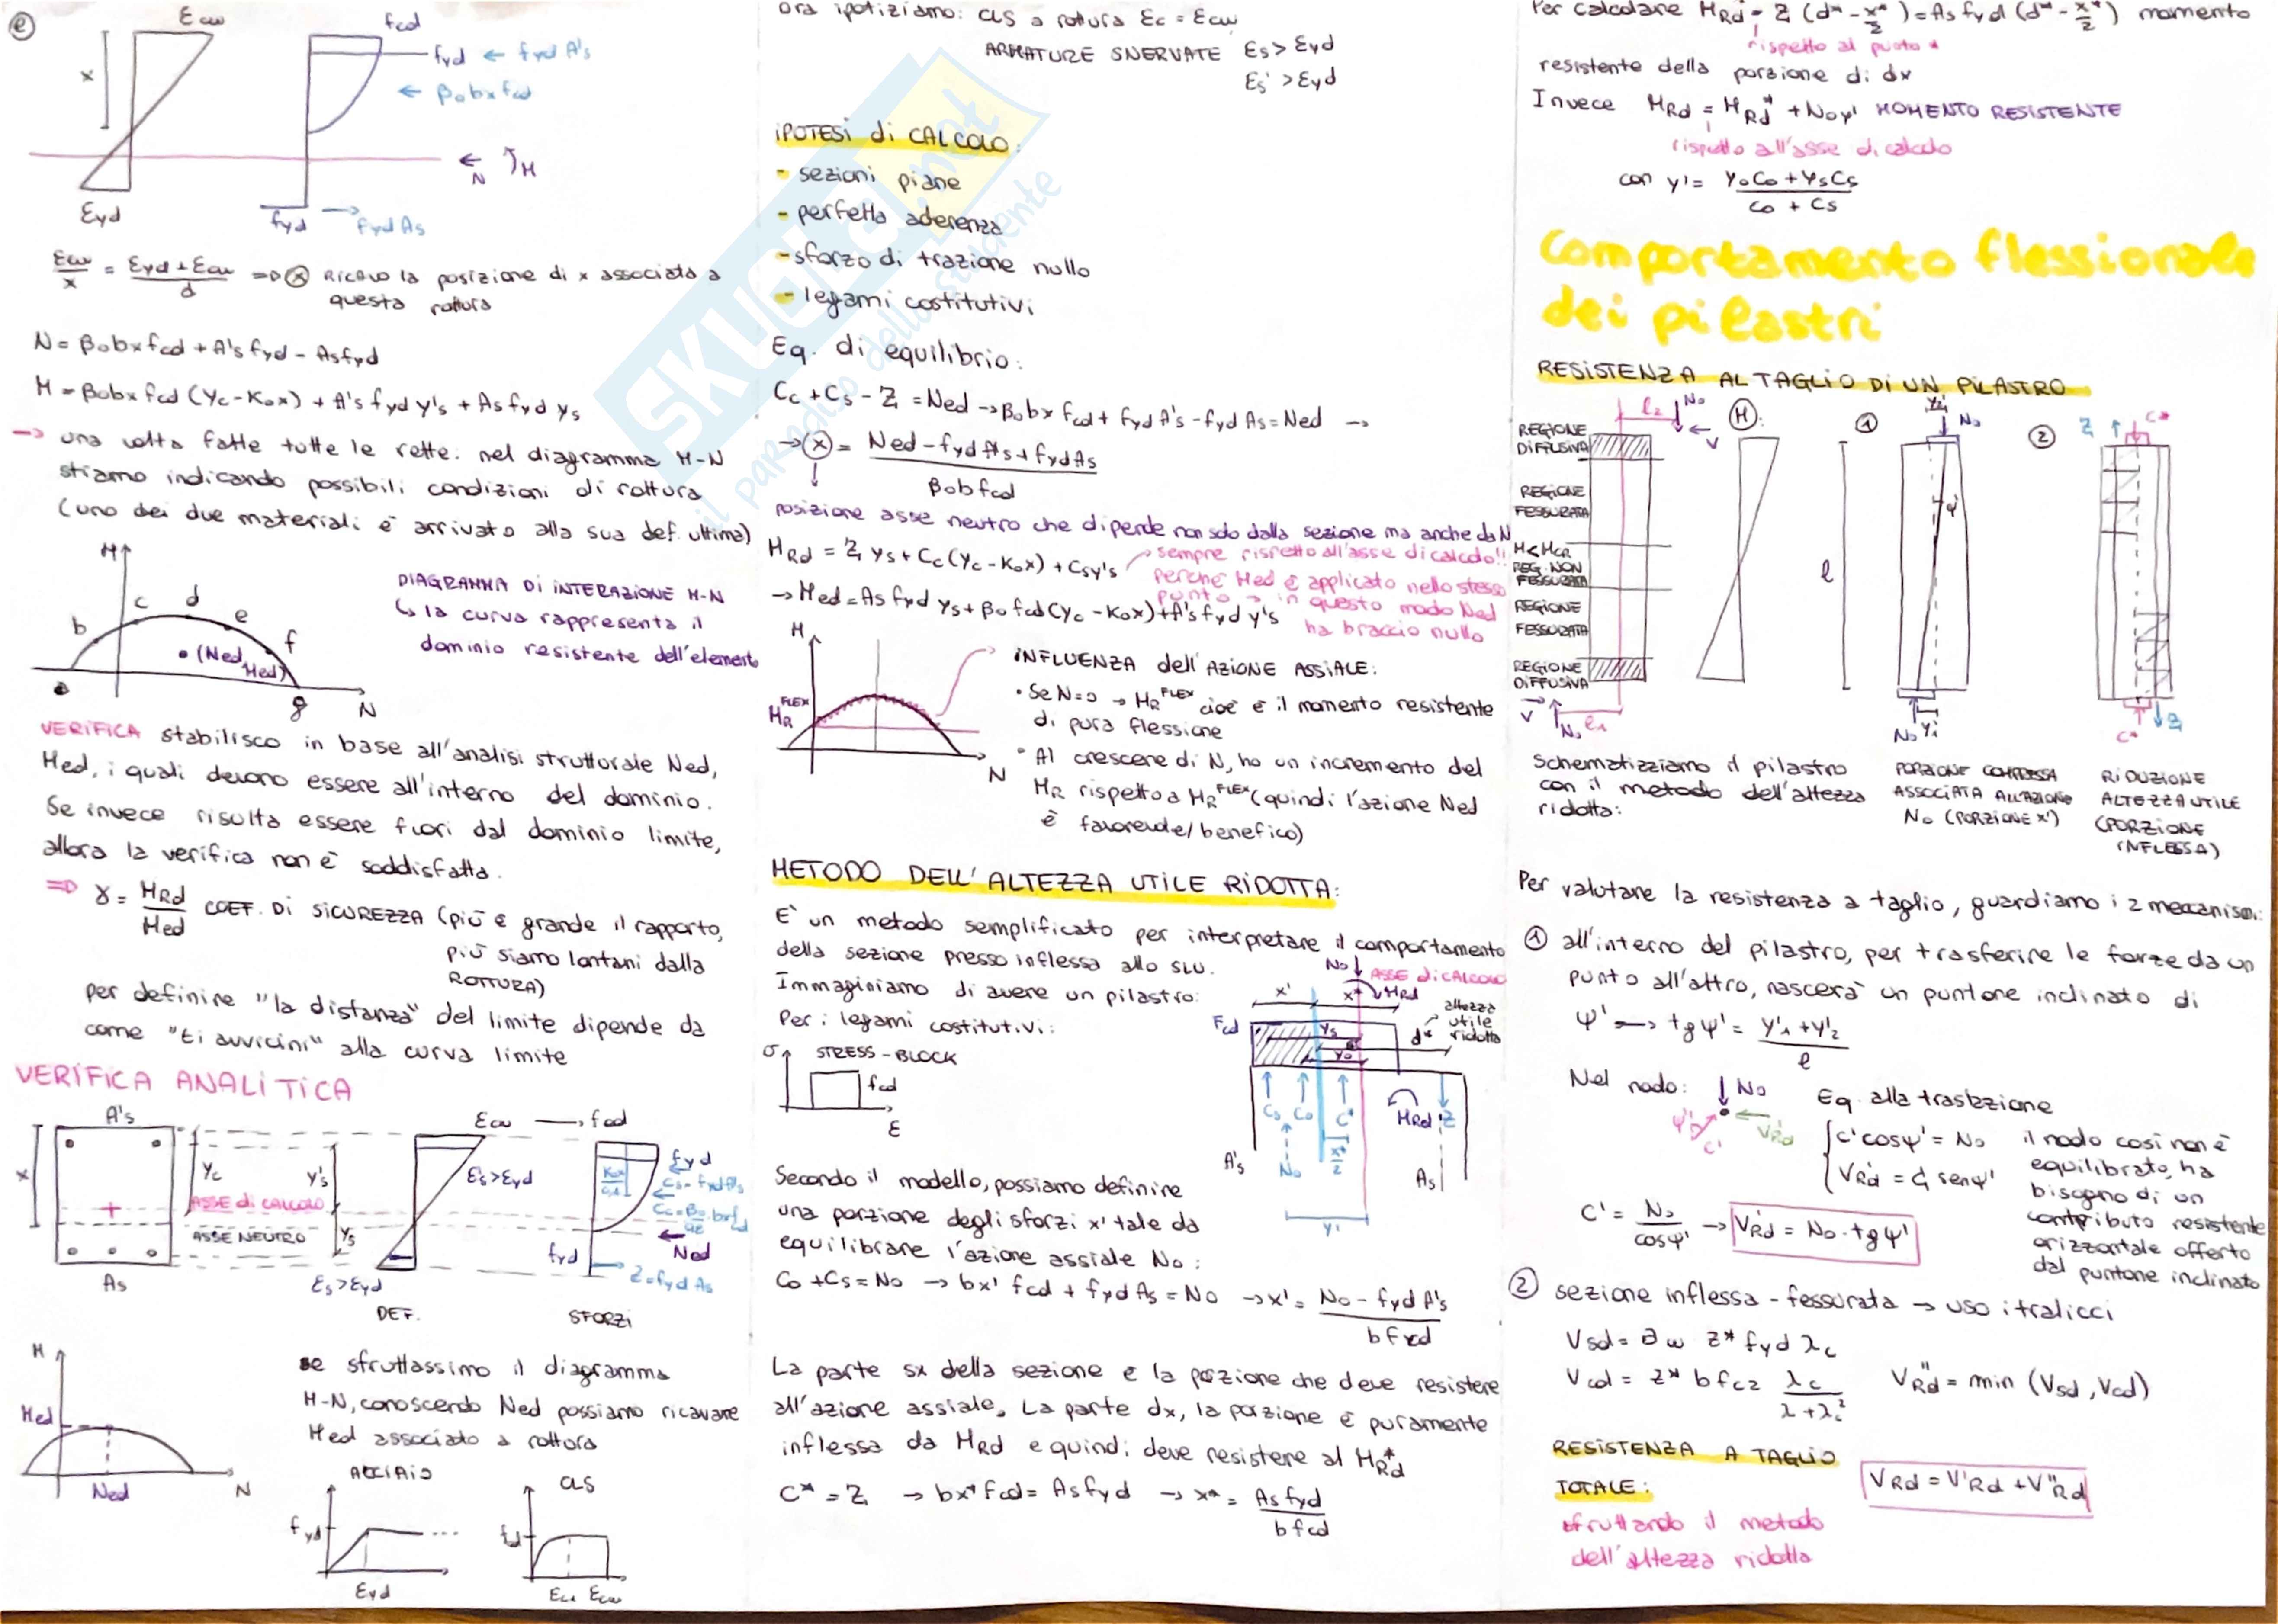 e
εcu
fcd
x
fyd ← fyd A's
← β0bx fcd
← N M
εyd
fyd → fyd As
εcu/x = (εyd + εcu)/d => x Ricavo la posizione di x associata a
questa rottura
N = β0bx fcd + A's fyd - As fyd
M = β0bx fcd (yc - K0x) + A's fyd y's + As fyd ys
→ una volta fatte tutte le rette: nel diagramma M-N
stiamo indicando possibili condizioni di rottura
(uno dei due materiali è arrivato alla sua def. ultima)
M
b c d e f
• (Ned, Med)
a g N
DIAGRAMMA DI INTERAZIONE M-N
↳ la curva rappresenta il
dominio resistente dell'elemento
VERIFICA stabilisco in base all'analisi strutturale Ned,
Med, i quali devono essere all'interno del dominio.
Se invece risulta essere fuori dal dominio limite,
allora la verifica non è soddisfatta.
=> γ = MRd/Med COEF. DI SICUREZZA (più è grande il rapporto,
più siamo lontani dalla
ROTTURA)
per definire "la distanza" del limite dipende da
come "ti avvicini" alla curva limite
VERIFICA ANALITICA
A's
x
yc
y's
ASSE di CALCOLO
ASSE NEUTRO
ys
As
εcu → fcd
ε's > εyd
εs > εyd
DEF.
fyd
Ned
fyd
Z = fyd As
SFORZI
M
Med
Ned
N
se sfruttassimo il diagramma
M-N, conoscendo Ned possiamo ricavare
Med associato a rottura
ACCIAIO
fyd
εyd
cls
εcu
ora ipotizziamo: cls a rottura εc = εcu
ARMATURE SNERVATE εs > εyd
εs' > εyd
IPOTESI di CALCOLO:
- sezioni piane
- perfetta aderenza
- sforzo di trazione nullo
- legami costitutivi
Eq. di equilibrio:
Cc + Cs - Z = Ned → β0bx fcd + fyd A's - fyd As = Ned →
→ x = (Ned - fyd A's + fyd As)/(β0b fcd)
posizione asse neutro che dipende non solo dalla sezione ma anche da N
MRd = Z ys + Cc (yc - K0x) + Cs y's
sempre rispetto all'asse di calcolo!!
perché Med è applicato nello stesso
punto → in questo modo Ned
ha braccio nullo
→ Med = As fyd ys + β0 fcd (yc - K0x) + A's fyd y's
M
MR FLEX
N
INFLUENZA dell'AZIONE ASSIALE:
• Se N=0 → MR FLEX cioè è il momento resistente
di pura flessione
• Al crescere di N, ho un incremento del
MR rispetto a MR FLEX (quindi l'azione Ned
è favorevole/benefico)
METODO DELL'ALTEZZA UTILE RIDOTTA:
E' un metodo semplificato per interpretare il comportamento
della sezione presso inflessa allo SLU.
Immaginiamo di avere un pilastro:
Per i legami costitutivi:
σ STRESS-BLOCK
fcd
ε
N0 ASSE di CALCOLO
x' x* MRd
altezza
utile
ridotta
d*
Fcd
ys
y0
Cs C0 C* MRd Z
A's N0 x*/2 As
y'
Secondo il modello, possiamo definire
una porzione degli sforzi x' tale da
equilibrare l'azione assiale N0:
C0 + Cs = N0 → bx' fcd + fyd A's = N0 → x' = (N0 - fyd A's)/(b fcd)
La parte sx della sezione è la porzione che deve resistere
all'azione assiale. La parte dx, la porzione è puramente
inflessa da MRd e quindi deve resistere al M*Rd
C* = Z → bx* fcd = As fyd → x* = As fyd/(b fcd)
Per calcolare MRd* = Z (d* - x*/2) = As fyd (d* - x*/2) momento
rispetto al punto *
resistente della porzione di dx
Invece MRd = MRd* + N0 y' MOMENTO RESISTENTE
rispetto all'asse di calcolo
con y' = (y0 C0 + ys Cs)/(C0 + Cs)
comportamento flessionale
dei pilastri
RESISTENZA AL TAGLIO DI UN PILASTRO
REGIONE
DIFFUSIVA
REGIONE
FESSURATA
M<MCR
REG. NON
FESSURATA
REGIONE
FESSURATA
REGIONE
DIFFUSIVA
e2 N0
V
M
V N0 e1
l
1
N0
φ'
N0
2
Z C*
C* Z
Schematizziamo il pilastro
con il metodo dell'altezza
ridotta:
PORZIONE COMPRESSA
ASSOCIATA ALL'AZIONE
N0 (PORZIONE X')
RIDUZIONE
ALTEZZA UTILE
(PORZIONE
INFLESSA)
Per valutare la resistenza a taglio, guardiamo i 2 meccanismi:
1 all'interno del pilastro, per trasferire le forze da un
punto all'altro, nascerà un puntone inclinato di
φ' → tgφ' = (y'1 + y'2)/l
Nel nodo: N0
φ' C' V'Rd
Eq. alla traslazione
{C'cosφ' = N0
V'Rd = C' senφ'
il nodo così non è
equilibrato, ha
bisogno di un
contributo resistente
orizzontale offerto
dal puntone inclinato
C' = N0/cosφ' → V'Rd = N0 · tgφ'
2 sezione inflessa - fessurata → uso i tralicci
Vsd = aw z* fyd λc
Vcd = z* b fc2 λc/(λ+λc²)
V''Rd = min (Vsd, Vcd)
RESISTENZA A TAGLIO
TOTALE:
VRd = V'Rd + V''Rd
sfruttando il metodo
dell'altezza ridotta
SKUOLA.net
il paradiso dello studente